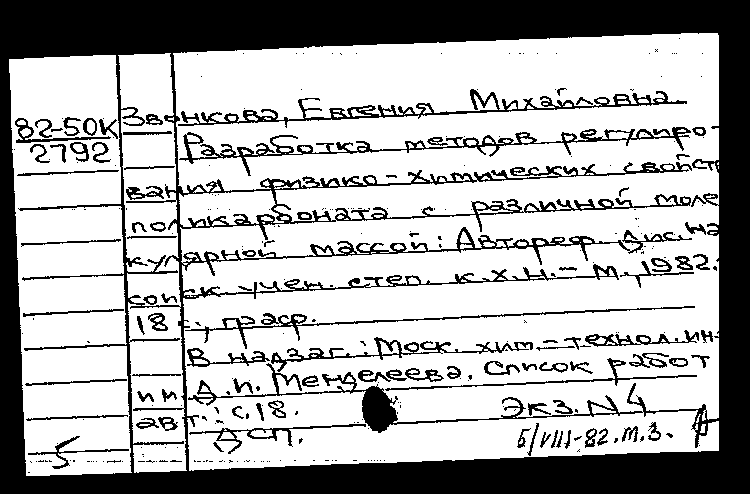 82-50К
2792
Звонкова, Евгения Михайловна
Разработка методов регулиро-
вания физико-химических свойств
поликарбоната с различной моле
кулярной массой: Автореф. Дис. на
соиск учен. степ. к.х.н. - М., 1982.-
18 с., граф.
В надзаг.: Моск. хим.-технол. ин-
им. Д.И. Менделеева. Список работ
авт.: с. 18.
Экз. N 4
ДСП.
Б/VIII-82. м.з.
5